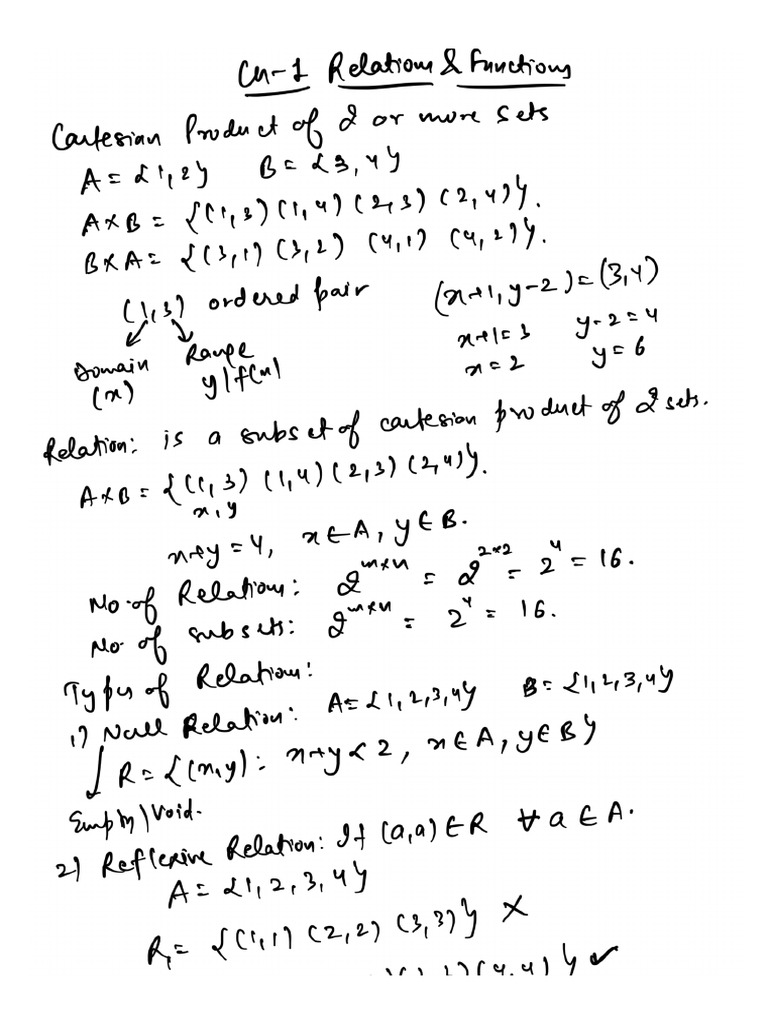 Ch-1 Relations & Functions
Cartesian Product of 2 or more sets
A = {1,2} B = {3,4}
A×B = {(1,3) (1,4) (2,3) (2,4)}.
B×A = {(3,1) (3,2) (4,1) (4,2)}.
(1,3) ordered pair
Domain Range
(x) y|f(x)
(x+1, y-2) = (3,4)
x+1=3 y-2=4
x=2 y=6
Relation: is a subset of cartesian product of 2 sets.
A×B = {(1,3) (1,4) (2,3) (2,4)}.
x, y
x+y=4, x∈A, y∈B.
No. of Relations: 2^m×n = 2^2×2 = 2^4 = 16.
No. of subsets: 2^m×n = 2^4 = 16.
Types of Relations:
1) Null Relation: A={1,2,3,4} B={1,2,3,4}
R = {(x,y): x+y<2, x∈A, y∈B}
Empty|Void.
2) Reflexive Relation: If (a,a)∈R ∀a∈A.
A = {1,2,3,4}
R₁ = {(1,1) (2,2) (3,3)} ×
(4,4)} ✓